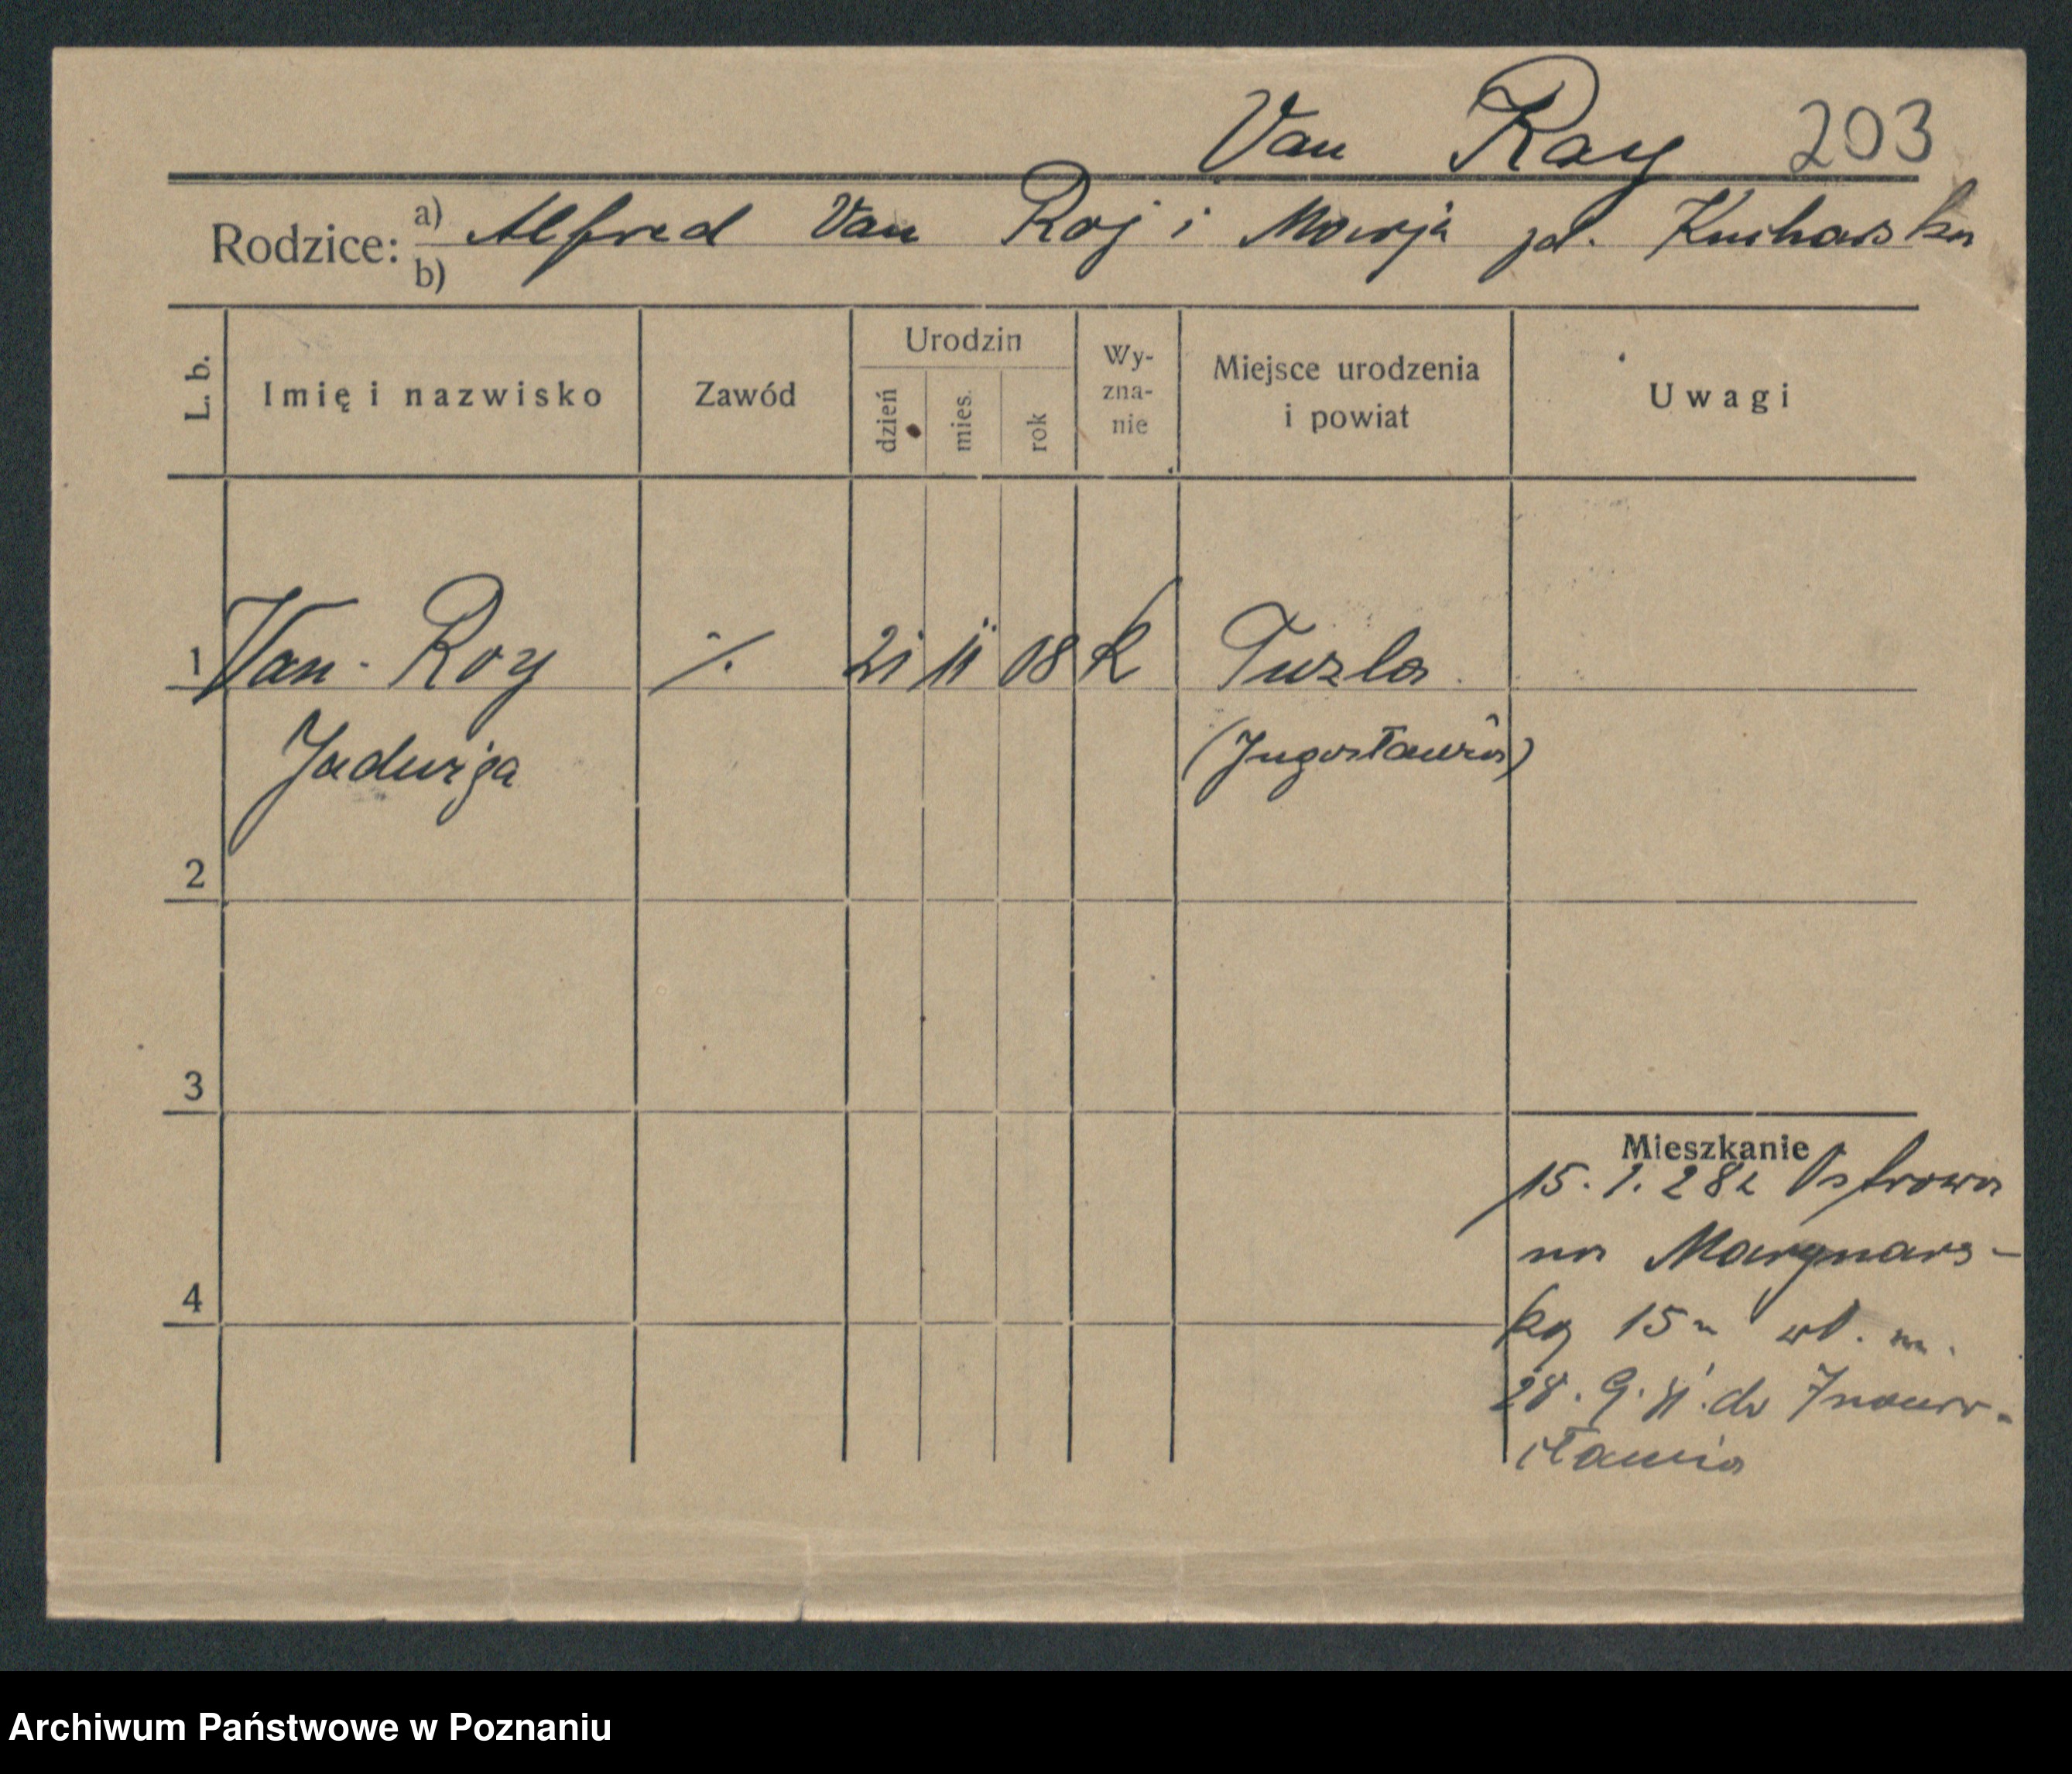 Van Roy 203
Rodzice: a) Alfred Van Roj i Marja zd. Kucharska
b)
L. b. Imię i nazwisko Zawód Urodzin dzień mies. rok Wy-zna-nie Miejsce urodzenia i powiat Uwagi
1 Van-Roy ·/. 21 11 08 k Tuzla
Jadwiga (Jugosławia)
2
3
Mieszkanie
15.1.28 z Ostrowa
na Marynars-
4
ką 15 wł. m.
28.9. do Inowro-
cławia
Archiwum Państwowe w Poznaniu